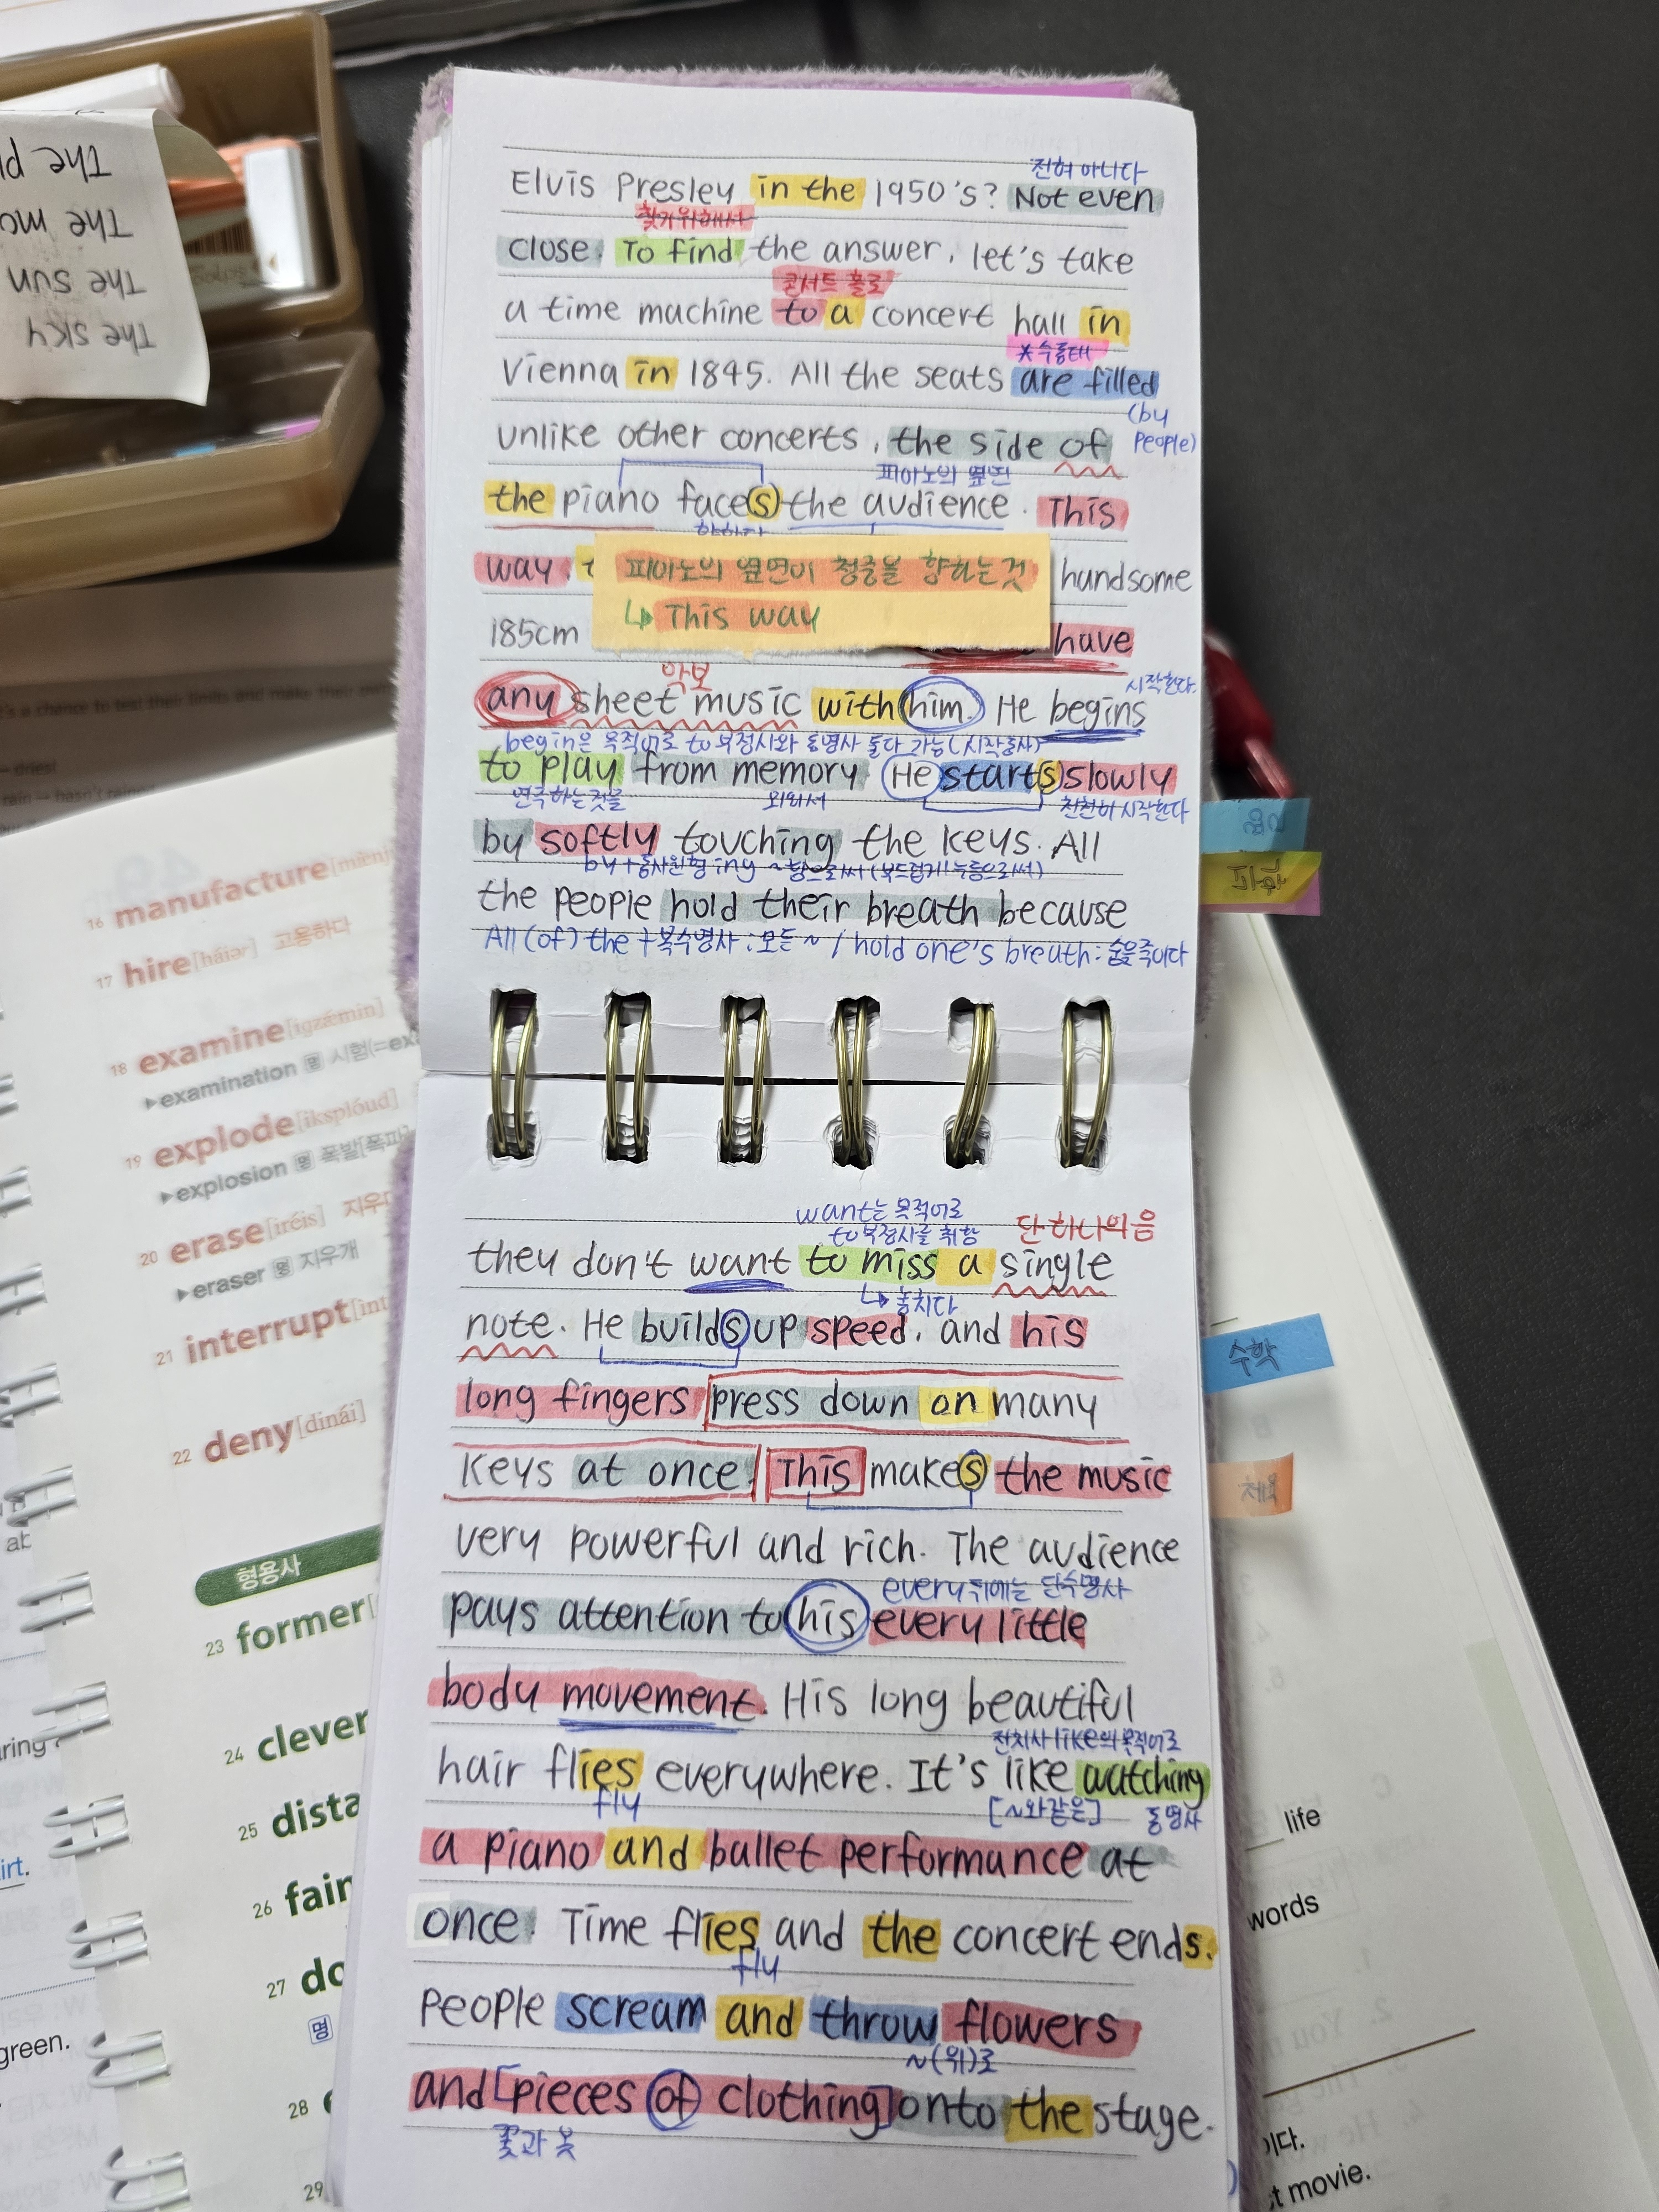 전혀 아니다
Elvis Presley in the 1950's? Not even
찾기위해서
close. To find the answer, let's take
콘서트 홀로
a time machine to a concert hall in
*수동태
Vienna in 1845. All the seats are filled
(by
people)
unlike other concerts, the side of
피아노의 옆면
the piano face(s) the audience. This
향하다
way, handsome
피아노의 옆면이 청중을 향하는것
↳ This way
185cm have
악보
시작한다.
any sheet music with him. He begins
begin은 목적어로 to부정사와 동명사 둘다 가능(시작동사)
to play from memory. He start(s) slowly
연주하는것을 외워서 천천히 시작한다
by softly touching the keys. All
by+동사원형ing ~함으로써(부드럽게 누름으로써)
the people hold their breath because
All(of) the +복수명사:모든~ / hold one's breath: 숨을죽이다
want는 목적어로
to부정사를 취함
단 하나의 음
they don't want to miss a single
↳ 놓치다
note. He build(s) up speed, and his
long fingers press down on many
keys at once. This make(s) the music
very powerful and rich. The audience
every뒤에는 단수명사
pays attention to his every little
body movement. His long beautiful
전치사 like의 목적어로
hair flies everywhere. It's like watching
fly [~와같은] 동명사
a piano and ballet performance at
once. Time flies and the concert ends.
fly
People scream and throw flowers
~(위)로
and [pieces of clothing] onto the stage.
꽃과 옷
The
The
The sun
The sky
수학
체육
16 manufacture
17 hire[háiər] 고용하다
18 examine[igzǽmin]
▶examination 명 시험
19 explode[iksplóud]
▶explosion 명 폭발
20 erase[iréis]
▶eraser 명 지우개
21 interrupt
22 deny[dinái]
형용사
23 former
24 clever
25
26
27
명
28
29
green.
life
words
movie.